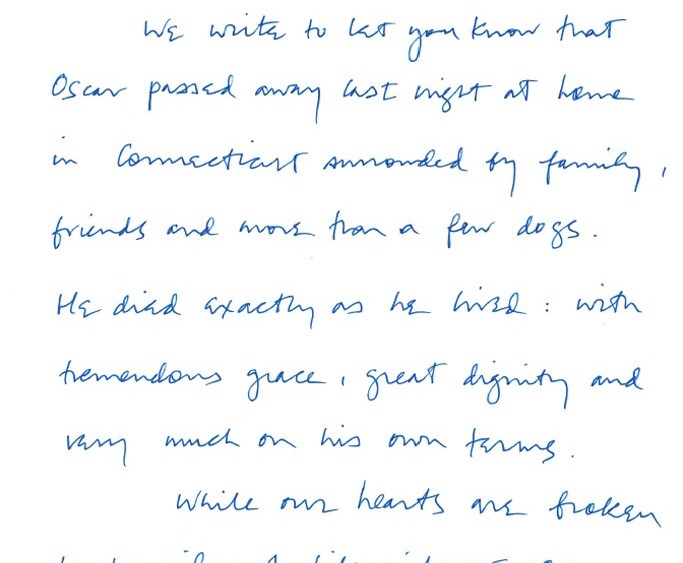 We write to let you know that
Oscar passed away last night at home
in Connecticut surrounded by family,
friends and more than a few dogs.
He died exactly as he lived: with
tremendous grace, great dignity and
very much on his own terms.
While our hearts are broken